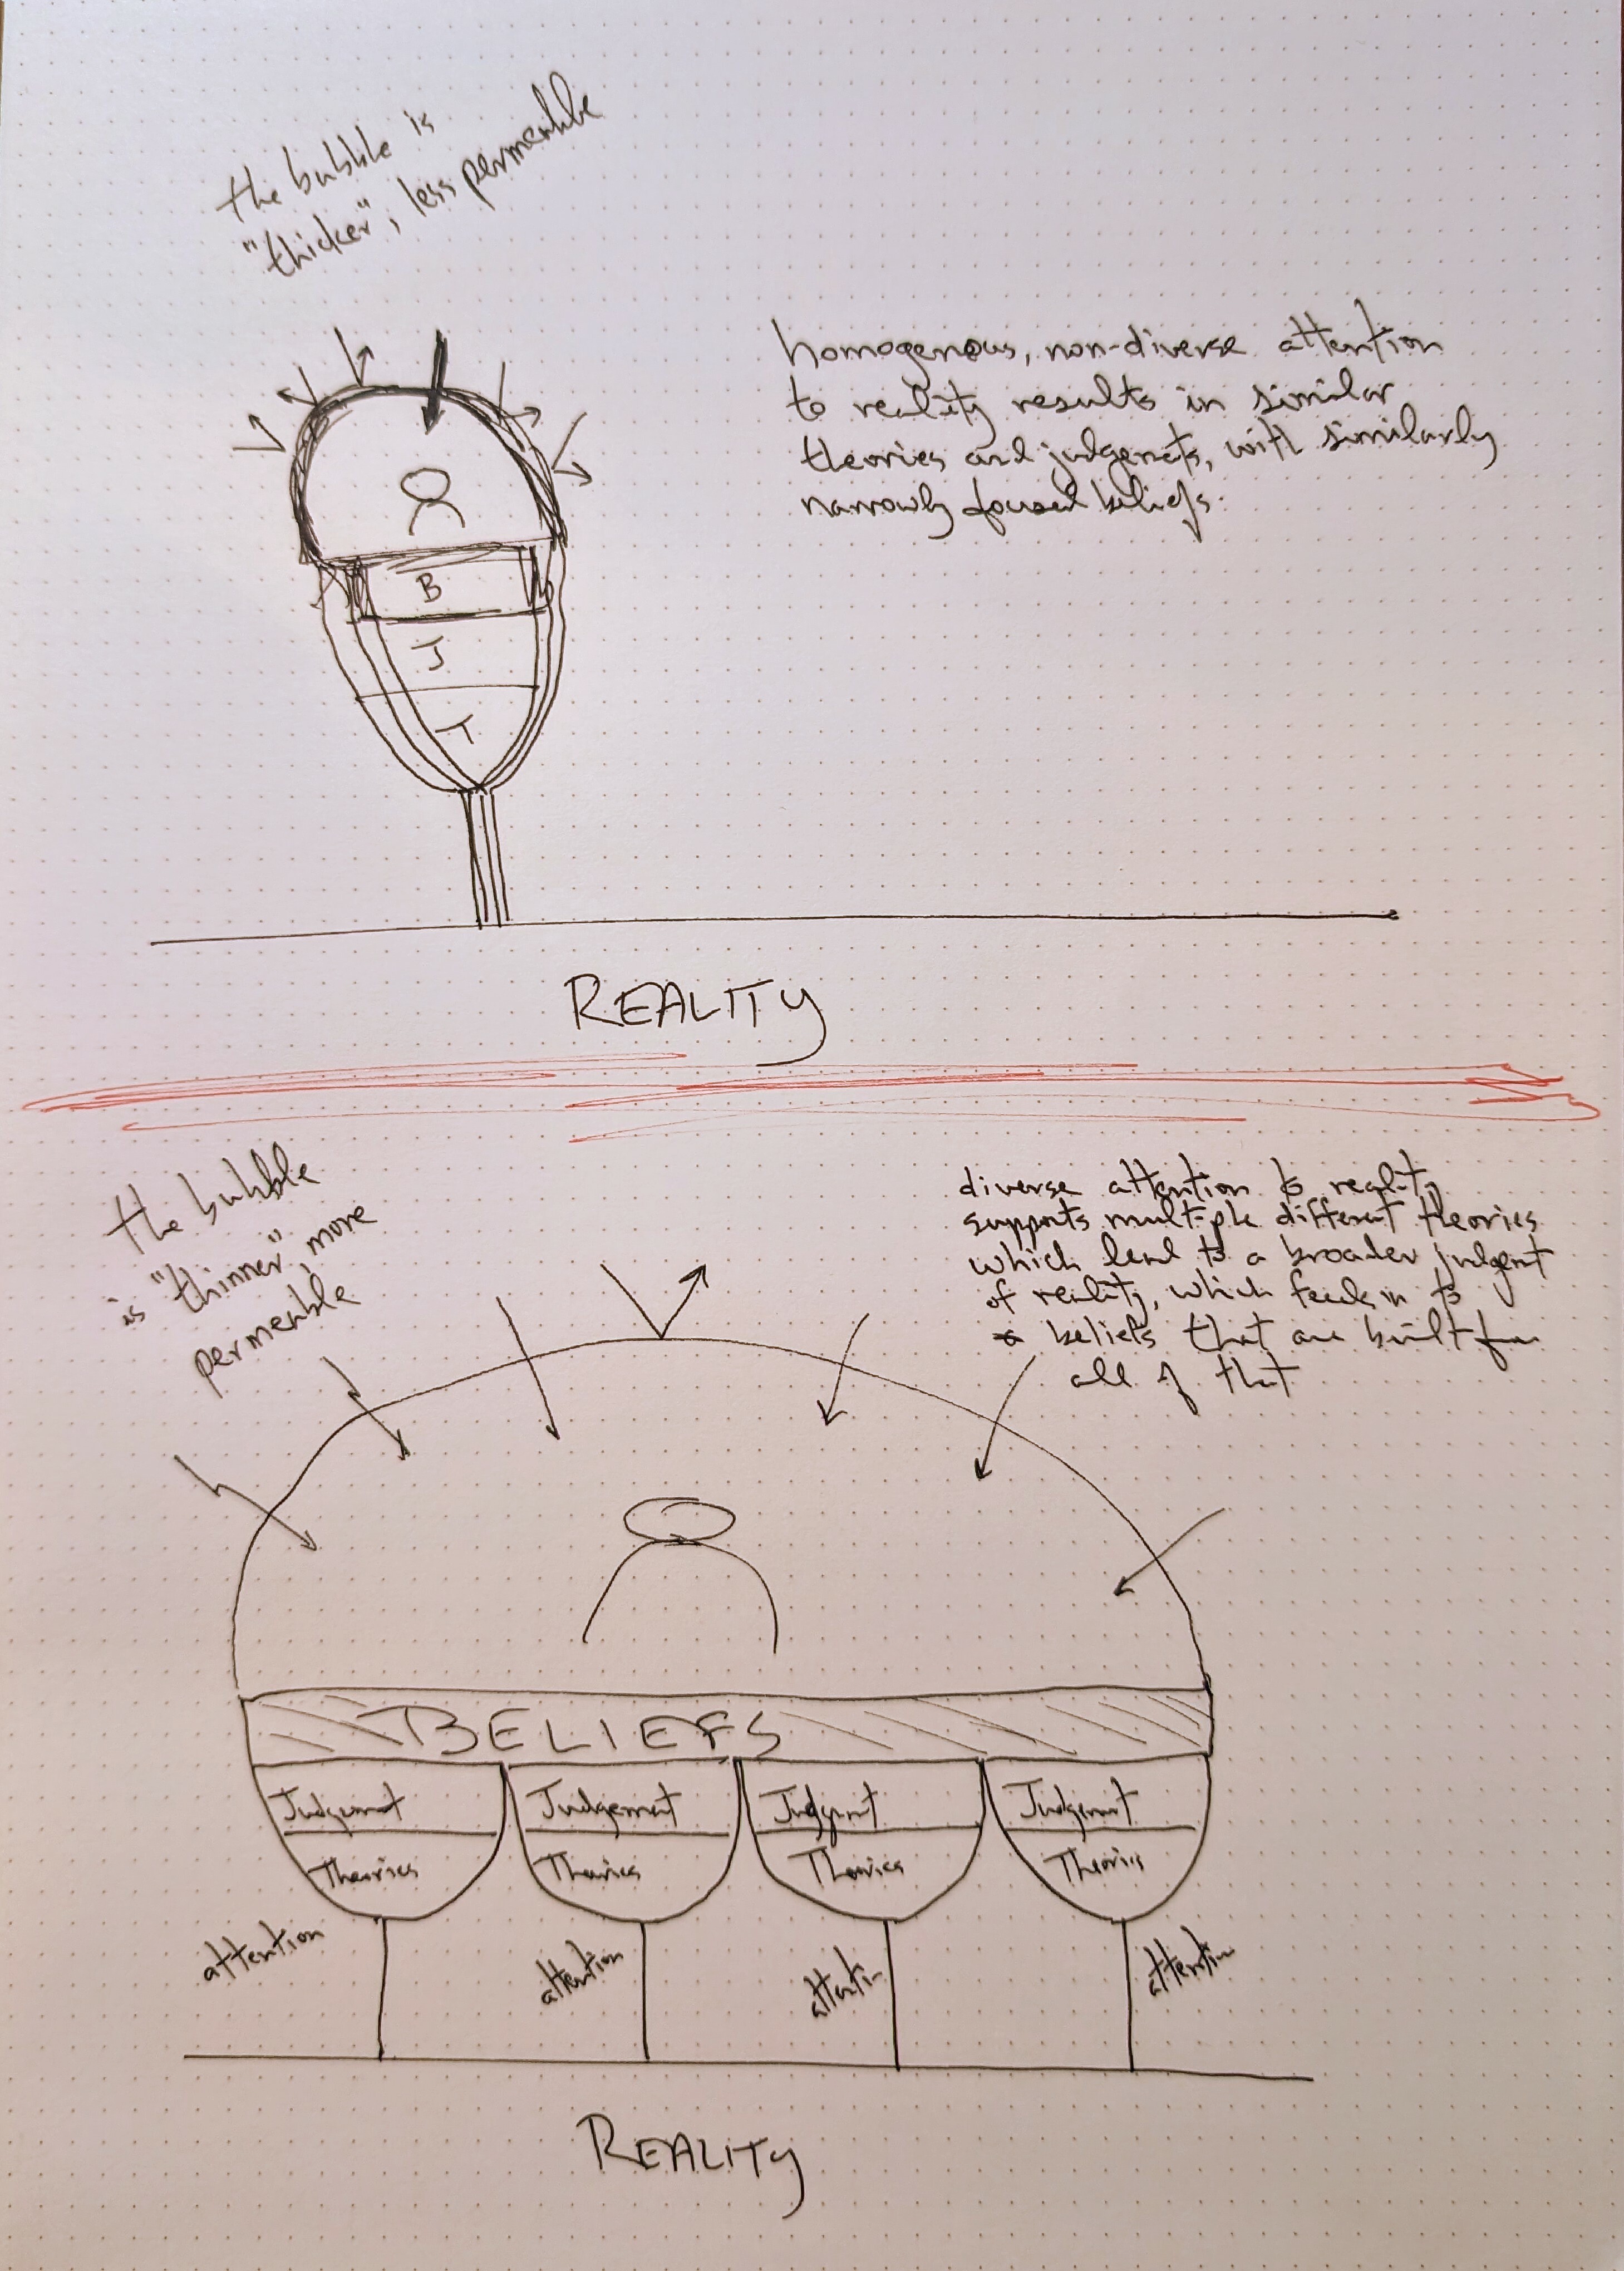 the bubble is
"thicker", less permeable
homogenous, non-diverse attention
to reality results in similar
theories and judgemets, with similarly
narrowly focused beliefs.
B
J
T
REALITY
the bubble
is "thinner", more
permeable
diverse attention to reality
supports multiple different theories
which lead to a broader judgent
of reality, which feeds in to
beliefs that are built from
all of that
BELIEFS
Judgement Judgement Judgment Judgement
Theories Theories Theories Theories
attention attention attention attention
REALITY